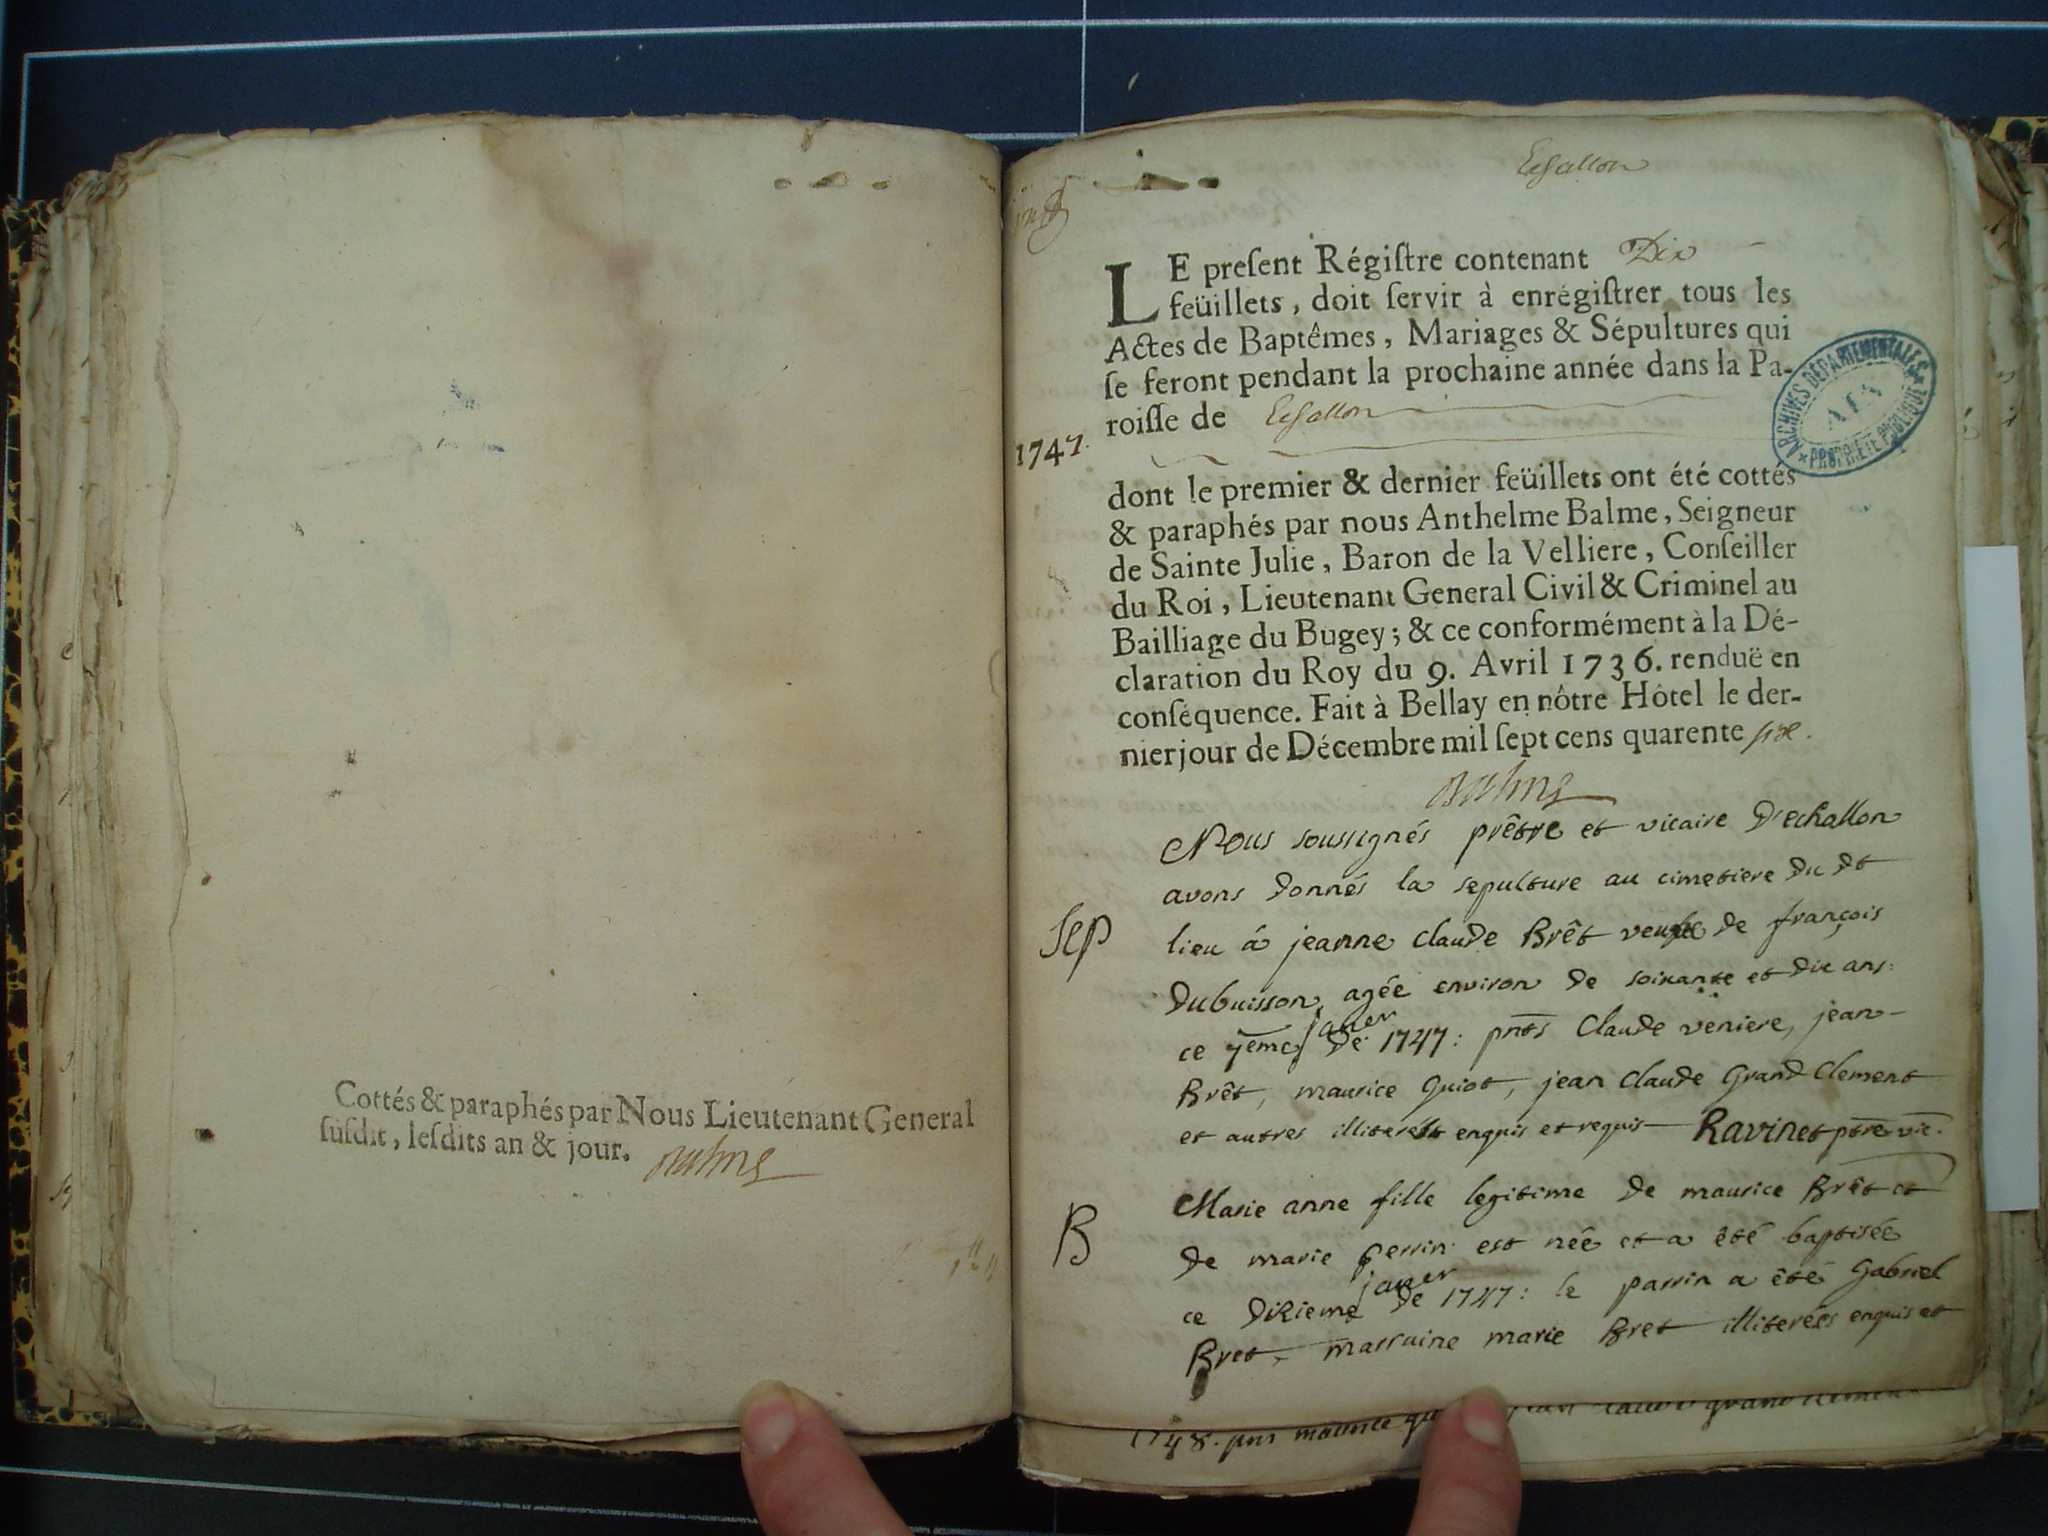 Cottés & paraphés par Nous Lieutenant General
ſuſdit, leſdits an & jour.
Balme
Eschallon
LE preſent Régiſtre contenant Dix
feüillets, doit ſervir à enrégiſtrer tous les
Actes de Baptêmes, Mariages & Sépultures qui
ſe feront pendant la prochaine année dans la Pa-
roiſſe de Eschallon
1747.
dont le premier & dernier feüillets ont été cottés
& paraphés par nous Anthelme Balme, Seigneur
de Sainte Julie, Baron de la Velliere, Conſeiller
du Roi, Lieutenant General Civil & Criminel au
Bailliage du Bugey; & ce conformément à la Dé-
claration du Roy du 9. Avril 1736. renduë en
conſéquence. Fait à Bellay en nôtre Hôtel le der-
nier jour de Décembre mil ſept cens quarente six.
Balme
ARCHIVES DÉPARTEMENTALES
AIN
PROPRIÉTÉ PUBLIQUE
Nous soussignés prêtre et vicaire D'echallon
avons donnés la sepulture au cimetiere du dt
Sep
lieu á jeanne claude Brêt veufe de françois
Dubuisson agée environ de soixante et dix ans:
ce 7eme janer de 1747: pnts Claude veniere, jean
Brêt, maurice Guiot, jean Claude Grand Clement
et autres illiterés enquis et requis Ravinet ptre vic.
B
Marie anne fille legitime de maurice Brêt et
de marie perrin est née et a êté baptisée
ce dixieme janer de 1747: le parrin a êté Gabriel
Bret, marraine marie Bret illiterées enquis et
1748. pns maurice claude grand clement